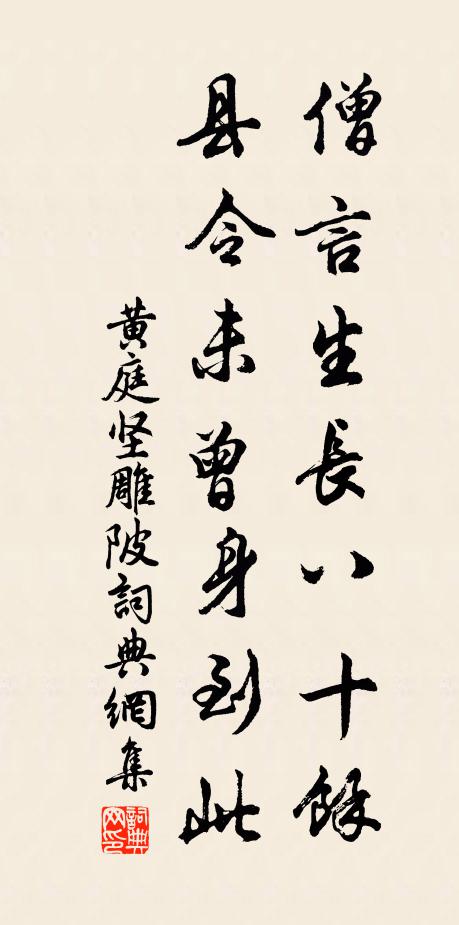 僧言生長八十餘
县令未曾身到此
黄庭坚雕陂詞典網集
詞典网印